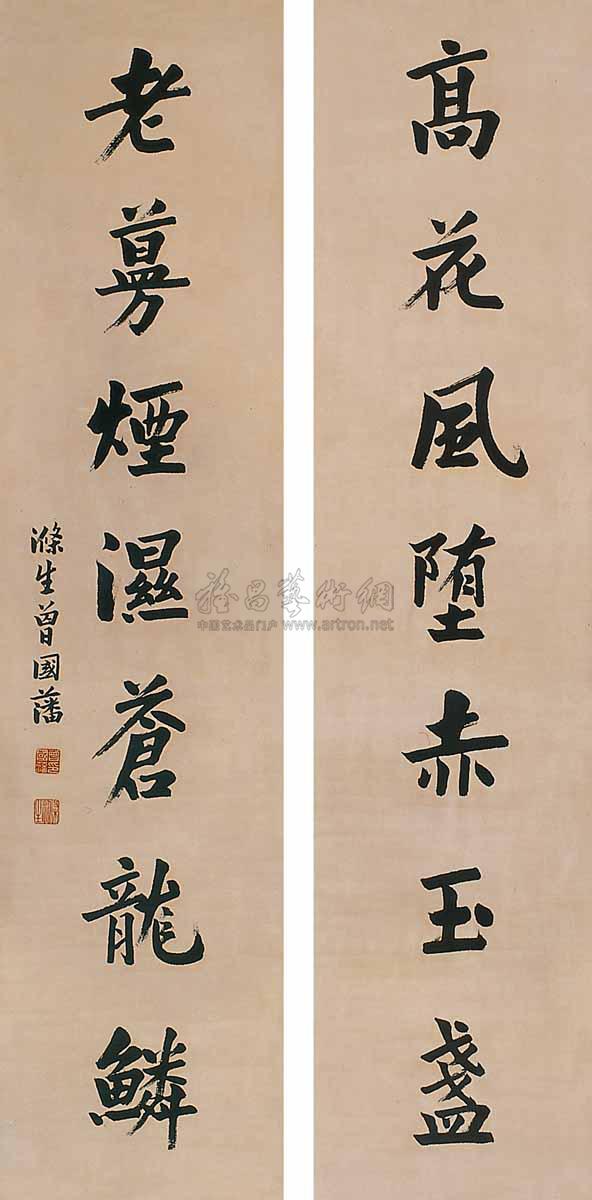 髙花風堕赤玉盞
老蔓煙濕蒼龍鱗
滌生曾國藩
雅昌藝術網
中国艺术品门户 www.artron.net